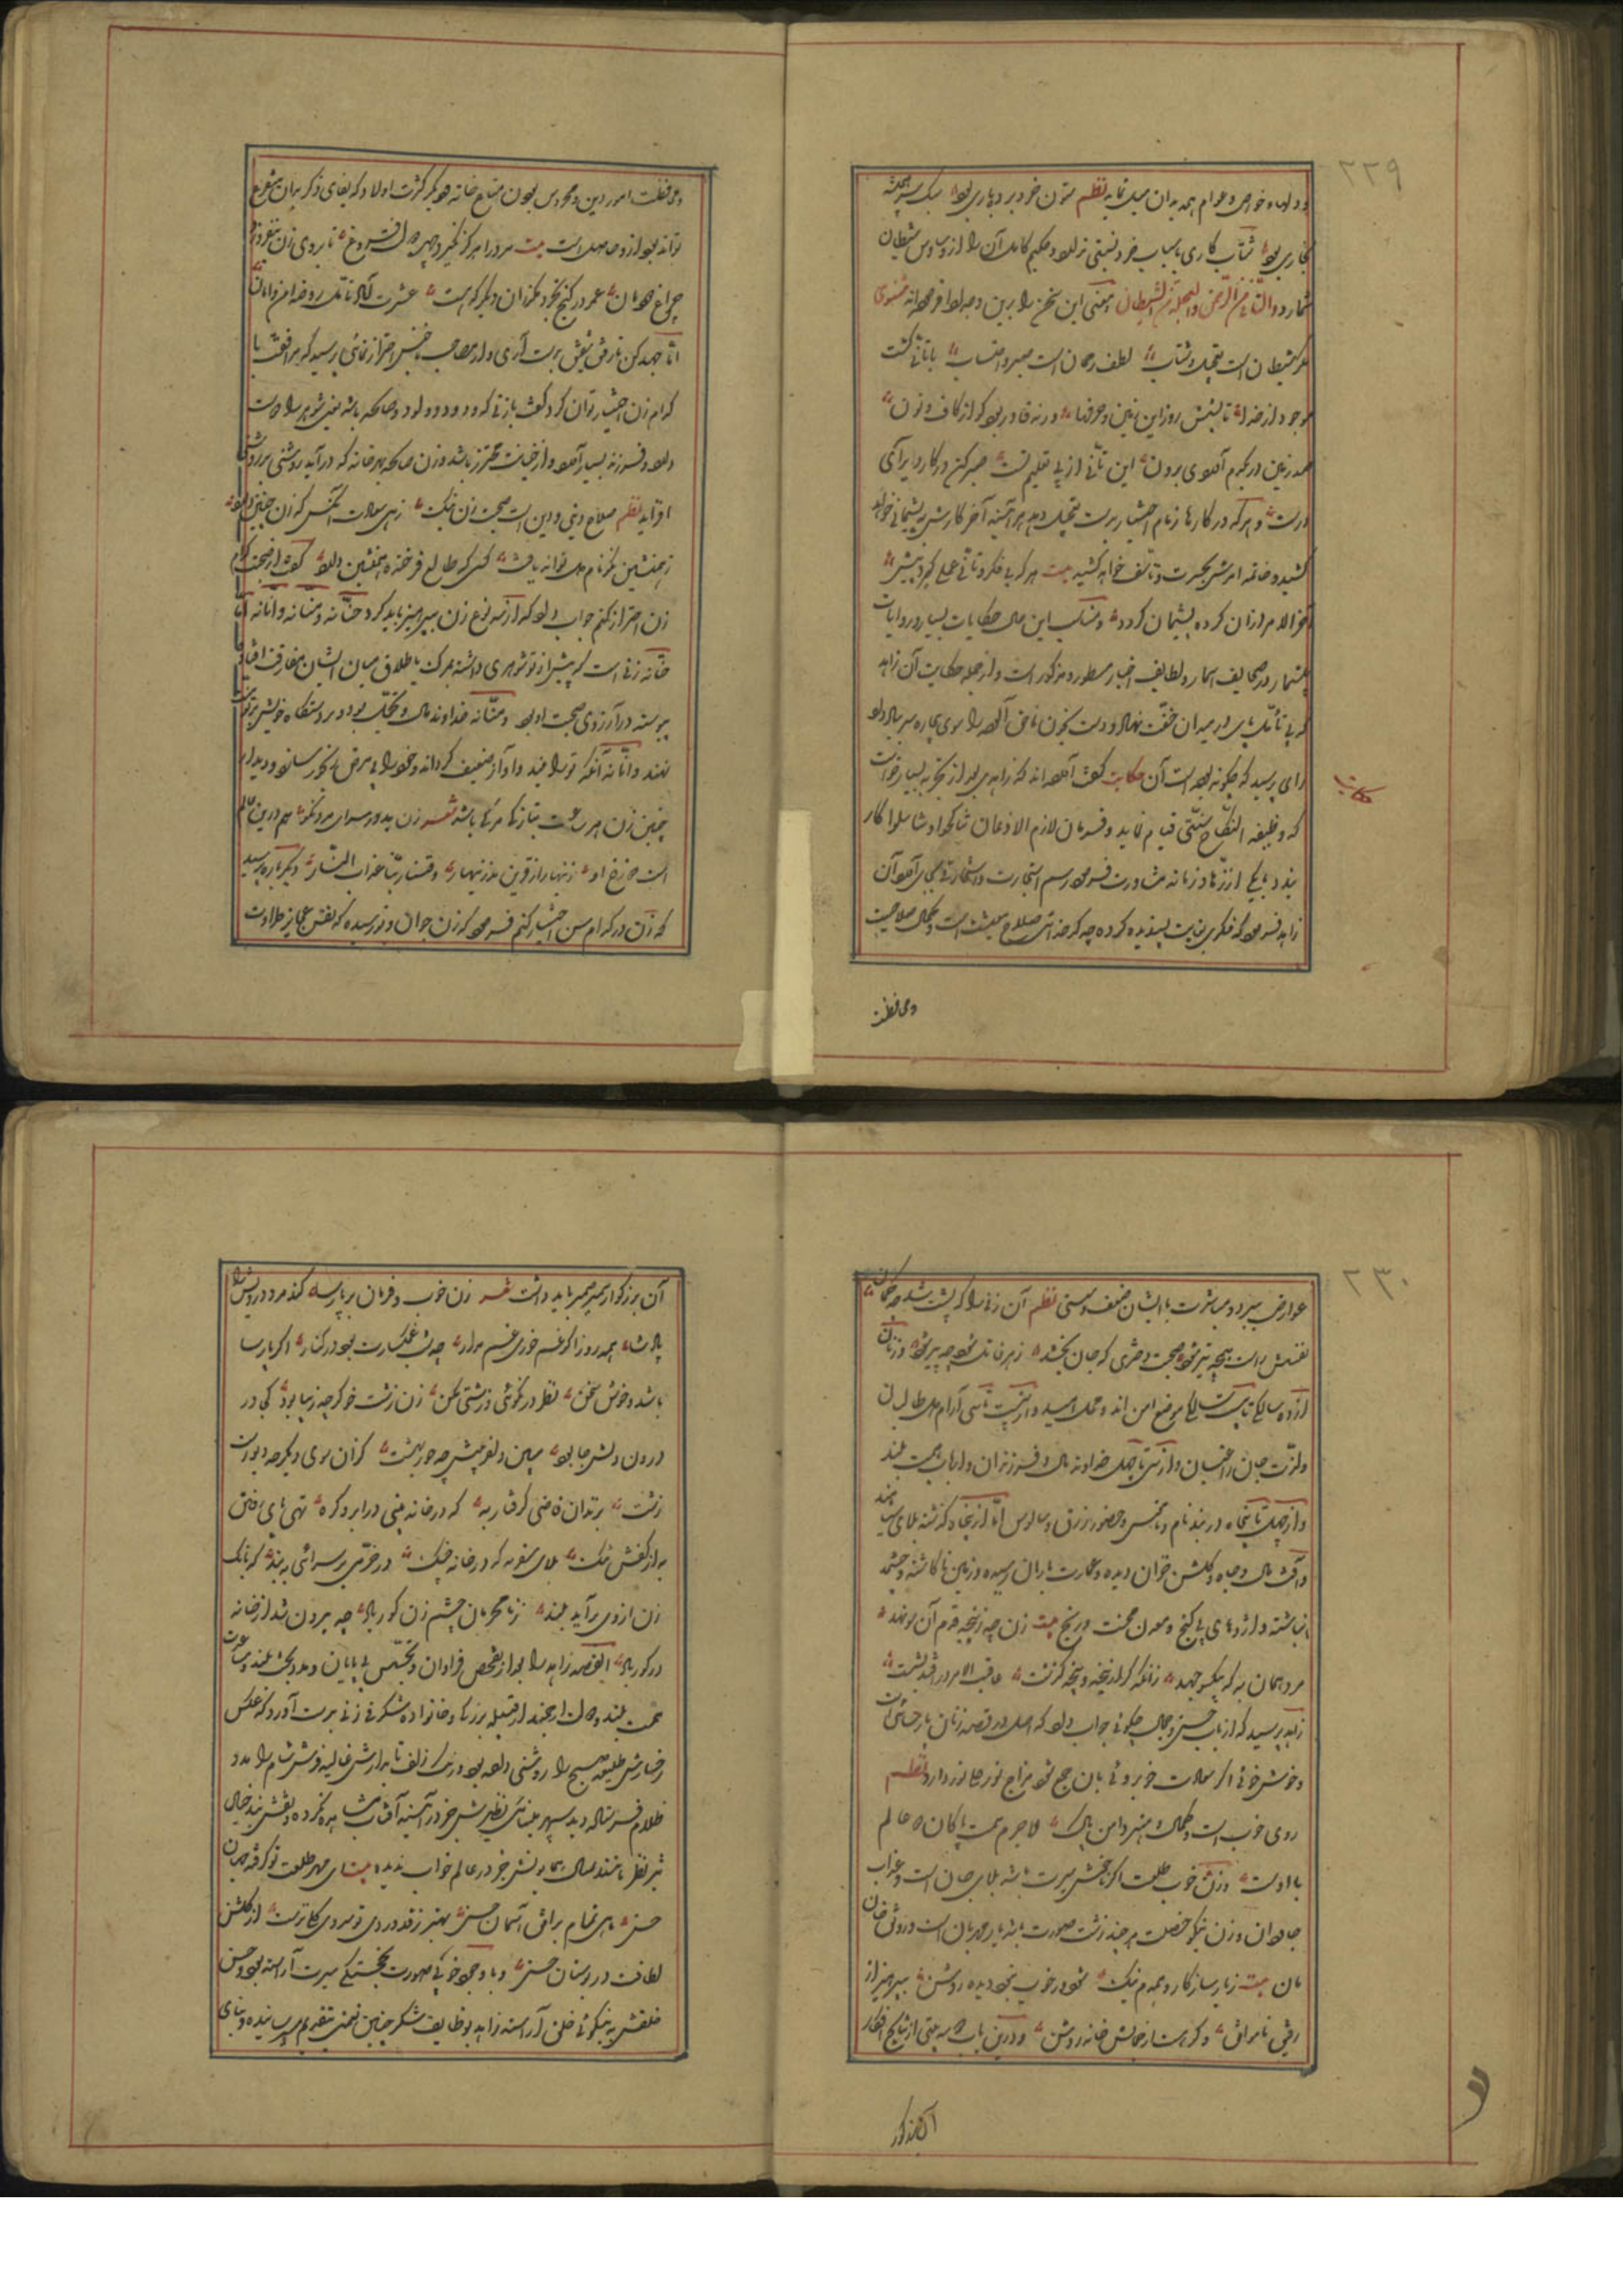 ۲۲۹
و دلهاء خواص و عوام همه بدان میل نماید نظم ستون خرد بردباری بود سبک سر همیشه
بخاری بود شتاب کاری باسباب خرد نسبتی ندارد و حکیم کامل آن را از وساوس شیطان
شمارد و التانی من الرحمن و العجلة من الشیطان و معنی این سخن را برین وجه ادا فرموده‌اند مثنوی
مکر شیطان است تعجیل و شتاب لطف رحمان است صبر و احتساب با تانی گشت
موجود از خدا تا بشش روز این زمین و چرخها ورنه قادر بود کو از کاف و نون
صد زمین در یکدم آوردی برون این تانی از پی تعلیم تست صبر کن در کار دیر آی
درست و هر که در کارها زمام اختیار بدست تعجیل دهد هر آینه آخر کارش به پشیمانی خواهد
کشید و خاتمه امرش بحسرت و تاسف خواهد کشید بیت هر که بی فکر و تانی عملی گیرد پیش
آخر الامر از آن کرده پشیمان گردد و مناسب این حال حکایات بسیار و روایات
بیشمار در صحایف اسمار و لطایف اخبار مسطور و مذکور است و از جمله حکایت آن زاهد
که بی تأمل پای در میدان خفت نهاد و دست بخون ناحق آلوده راسوی بیچاره سر بباد داد
رای پرسید که چگونه بوده است آن حکایت گفت آورده اند که زاهدی بعد از تجرد بسیار خواست
حکایت
که وظیفه النکاح سنتی قیام نماید و فرمان لازم الاذعان تناکحوا و تناسلوا کار
بندد با یکی از زهاد زمانه مشاورت فرمود و رسم استجازت و استخارتی بجای آورد آن
زاهد فرمود که فکری بغایت پسندیده کرده چه کدخدائی صلاح معیشت است و کمال صلاحیت
و محافظت
و محافظت امور دین و محروس بودن متاع خانه و دیگر کثرت اولاد که بقای ذکر بدان متفرع
تواند بود از وی حاصل است بیت مرد را هرگز نگیرد چهره دل فروغ تا بروی زن نیفروزد
چراغ خانمان عمر در کنج تجرد مگذران دیگر که هست عشرت آباد تأهل روضه امن و امان
اما جهد کن تا رفیق شفیق بدست آری و از مصاحب ناجنس احتراز نمائی پرسید که مرافقت با
کدام زن اختیار توان کرد گفت با زنی که ودود و ولود و صالحه باشد یعنی شوهر را دوست
دارد و فرزند بسیار آرد و از خیانت محترز باشد و زن صالحه بهر خانه که در آید روشنی بر روشنی
افزاید نظم صلاح دنیی و دین است صحبت زن نیک زهی سعادت آنکس که زن چنین دارد
ز همنشین نکو نام دل تواند یافت کسی که طالع فرخنده همنشین دارد گفت از صحبت کدام
زن احتراز کنم جواب داد که از سه نوع زن بپرهیز باید کرد حنانه و منانه و انانه اما
حنانه زنی است که پیش از تو شوهری داشته بمرگ یا طلاق میان ایشان مفارقت افتاده
پیوسته در آرزوی صحبت او بود و منانه خداوند مال و تجمل بود و بر دستگاه خویش بر تو منت
نهند و انانه آنکه تو را بیند و آواز ضعیف گرداند و خود را بی مرض رنجور سازد و دیدار
چنین زن هر ساعت بتازگی مرگی باشد شعر زن بد در سرای مرد نکو هم درین عالم
است دوزخ او زینهار از قرین بد زنهار و قنا ربنا عذاب النار دیگر باره پرسید
که زن در کدام سن اختیار کنم فرمود که زن جوان و نورسیده که نفس عجایز طراوت
۲۳۰
عوارض ببرد و مباشرت با ایشان ضعف و سستی نظم آن زنی را که پشت شد چو کمان
نفسش راست همچو تیر بود صحبت دختری که جان بخشد زهر قاتل بود چه پیر بود و زنان
از ده سالگی تا بیست سالگی موضع امن اند و محل امید و از بیست تا سی آرام دل طالبان
و لذت جان راغبان و از سی تا چهل خداوند مال و فرزندان و ارباب همت بلند
و از چهل تا پنجاه در بند نام و ناموس و حضور زرق و سالوس اما از پنجاه گذشته بلای سیاهند
و آفت مال و جاه و گلشن خزان دیده و عمارت باران رسیده و زمین ناکاشته و چشمه
انباشته و اژدهای بی گنج و معدن محنت و رنج بیت زن چه از پنجه قدم آن سو نهد
مرد همان به که بیکسو جهد زانکه گر از پنجه و پنجه گذشت عاقبت الامر در افتد بشست
زاهد پرسید که از باب حسن و جمال چه گوئی جواب داد که اصل در قصه زنان پارسائی است
و خوش خوئی اگر سعادت خوبروئی با آن جمع شود مزاج نور علی نور دارد نظم
روی خوب است و کمال هنر و دامن پاک لاجرم همت پاکان دو عالم
با اوست و زن خوب طلعت اگر ناخوش سیرت باشد بلای جان است و عذاب
جاودان و زن نیکو خصلت هر چند زشت صورت باشد یار مهربان است و روشنی خان
مان بیت ز یار سازگار و همدم نیک شود در خوب بخود دیده روشن بپرهیز از
رفیق ناموافق و گر هست از جمالش خانه روشن و درین باب دو سه بیتی از نتایج افکار
آن بزرگوار
آن بزرگوار بر ضمیر باید داشت شعر زن خوب و فرمان بر پارسا کند مرد درویش را
پادشا همه روز اگر غم خوری غم مدار چو شب غمگسارت بود در کنار اگر پارسا
باشد و خوش سخن نظر در نکوئی و زشتی مکن زن زشت خو گرچه زیبا بود کی در
درون دلش جا بود مبین دلفریبش چو حور بهشت کزان روی دیگر چو دیو است
زشت بزندان قاضی گرفتار به که در خانه بینی در ابرو گره تهی پای رفتن
به از کفش تنگ بلای سفر به که در خانه جنگ در خرمی بر سرائی ببند که بانگ
زن از وی برآید بلند ز نامحرمان چشم زن کور باد چو بیرون شد از خانه
در گور باد القصه زاهد را بعد از تفحص فراوان و تجسس بی پایان و مدد بخت بلند و مساعدت
همت بلند و حالت ارجمند از قبیله بزرگ و خانواده شگرف زنی بدست آورد که عکس
رخسارش طلیعه صبح را روشنی داده بود و رنگ زلف تابدارش غالیه فروش شام را مدد
ظلام فرستاده دیده سپهر مینائی نظیرش جز در آینه آفتاب مشاهده نکرده و نقش بند خیال
تیز نظر مانند جمال همایونش جز در عالم خواب ندیده بیت ای مهر طلعت تو گرفته جهان
حسن ماهی تمام برافق آسمان حسن بهتر ز قد و روی تو سروی و گل نرست از گلشن
لطافت و در بوستان حسن و با وجود خوبی صورت بخجستگی سیرت آراسته بود و حسن
خلقش به نیکوئی خلق آراسته زاهد بوظایف شکر چنین نعمتی بتقدیم میرسانیده و بنای